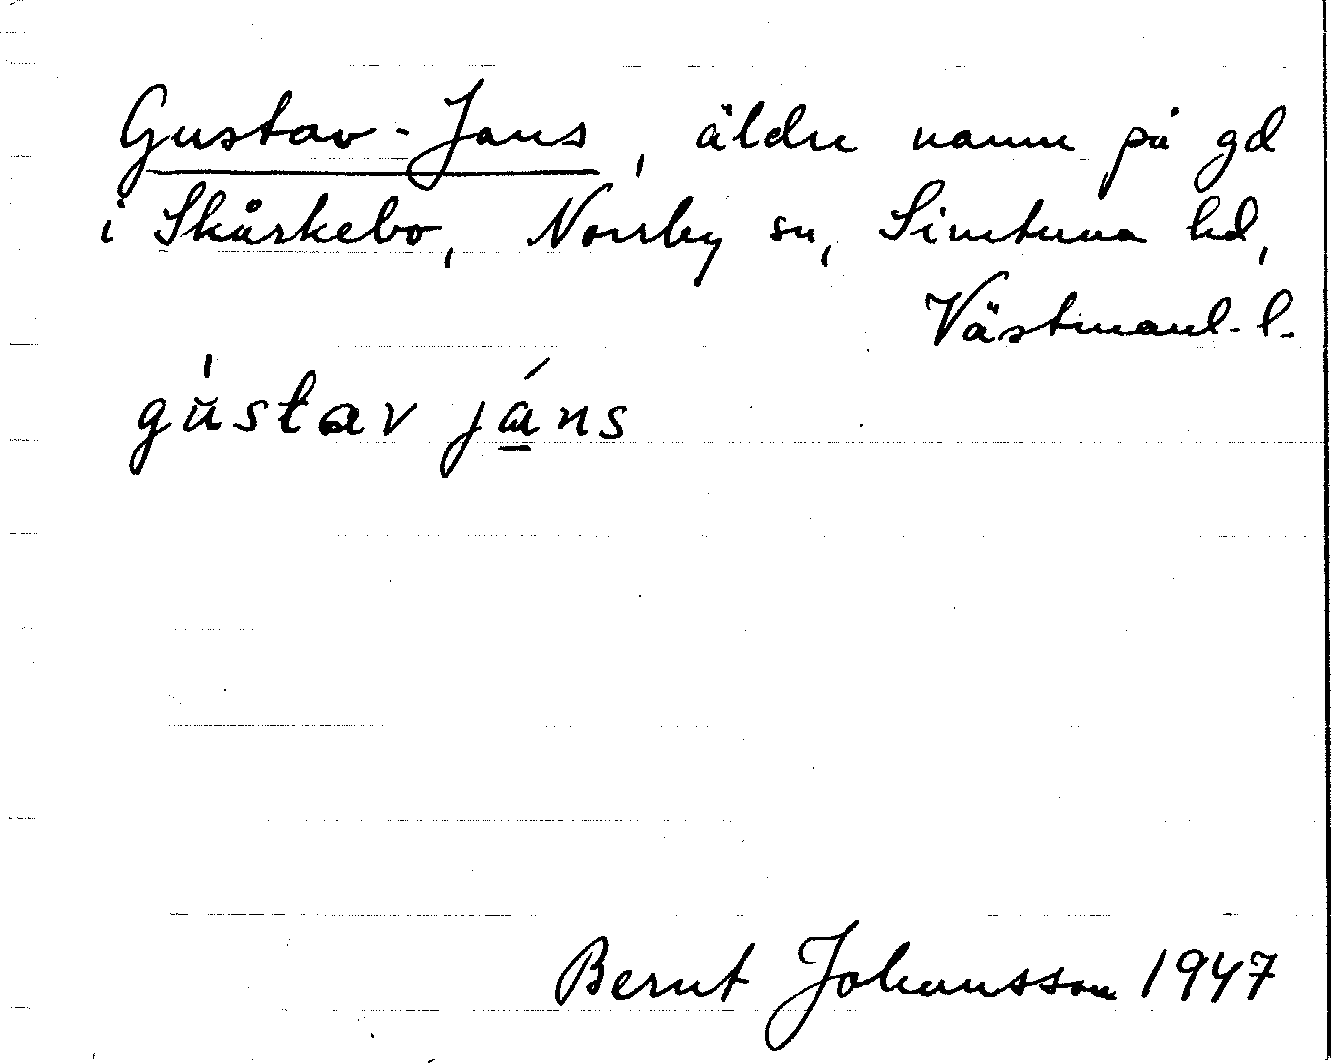 Gustav-Jans, äldre namn på gd
i Skårkebo, Norrby sn, Simtuna hd,
Västmanl. l.
gùstav já̱ns
Bernt Johansson 1947